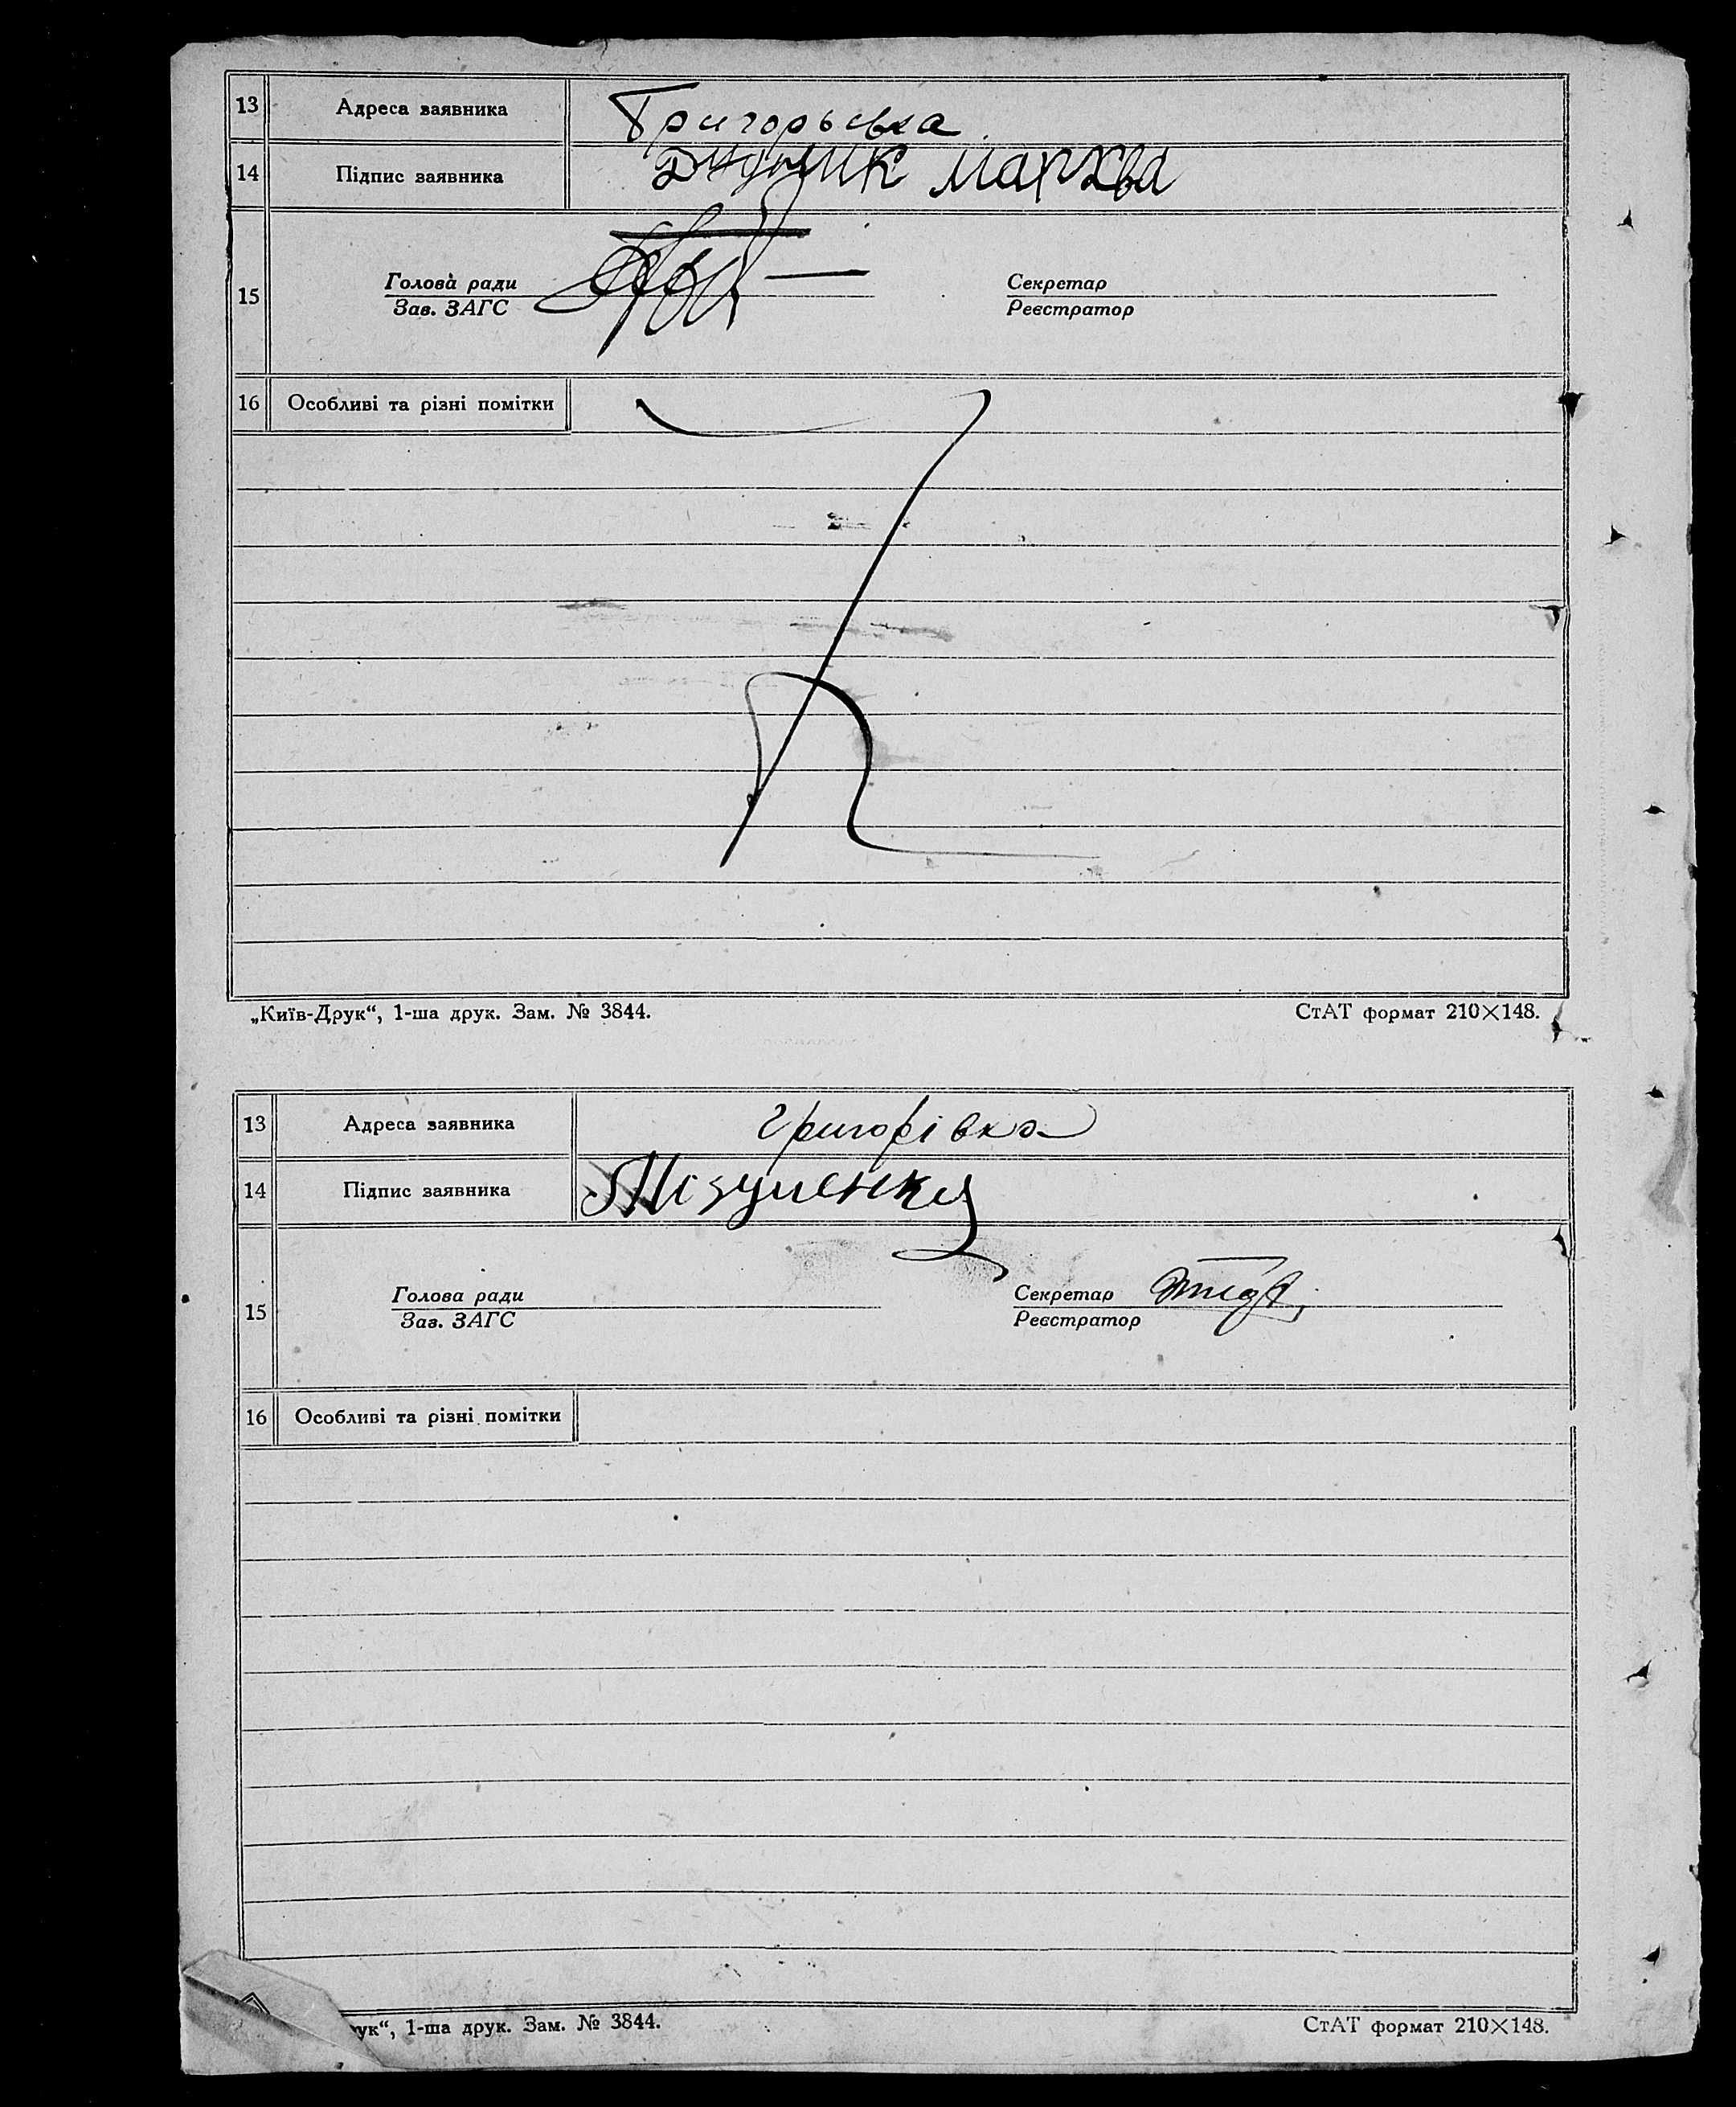 13 Адреса заявника Григорьевка
14 Підпис заявника Дидык Мархва
15 Голова ради Секретар
Зав. ЗАГС Реєстратор
16 Особливі та різні помітки
„Київ-Друк“, 1-ша друк. Зам. № 3844. СтАТ формат 210×148.
13 Адреса заявника Григорівка
14 Підпис заявника
15 Голова ради Секретар
Зав. ЗАГС Реєстратор
16 Особливі та різні помітки
рук“, 1-ша друк. Зам. № 3844. СтАТ формат 210×148.